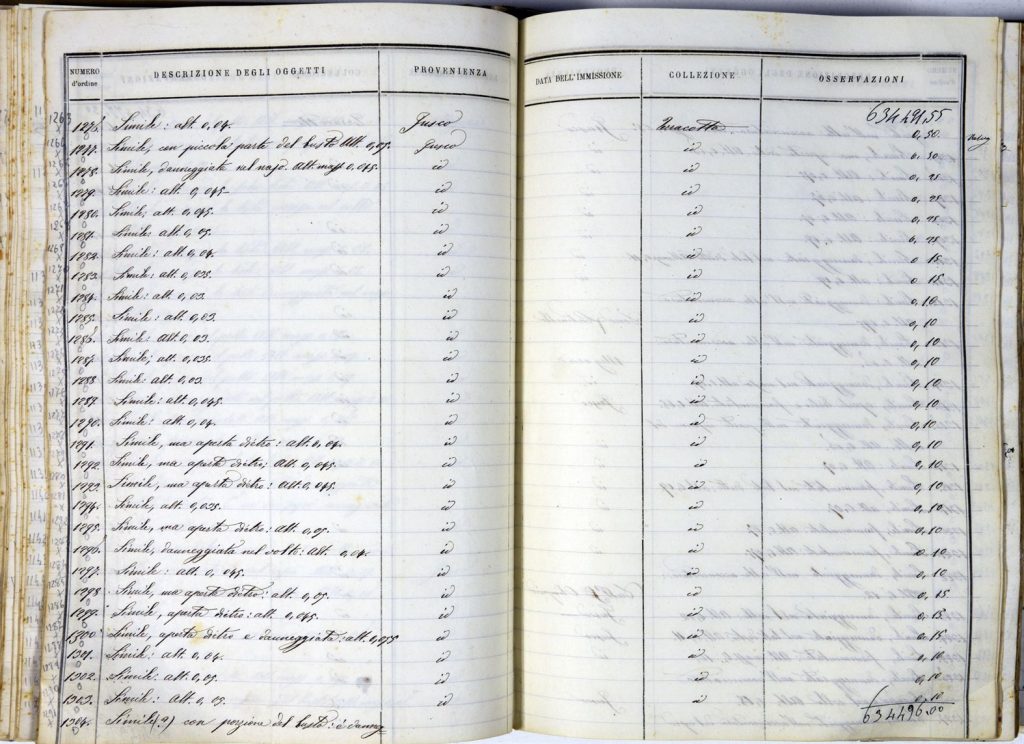 NUMERO d'ordine DESCRIZIONE DEGLI OGGETTI PROVENIENZA DATA DELL'IMMISSIONE COLLEZIONE OSSERVAZIONI
634491,55
1276. Simile: alt. 0,04. Fusco Terracotta 0,50
1277. Simile, con piccola parte del busto Alt. 0,05. Fusco id 0,50
1278. Simile, danneggiata nel naso. Alt. mass. 0,045. id id 0,25
1279. Simile: alt. 0,045 id id 0,25
1280. Simile; alt. 0,045. id id 0,25
1281. Simile: alt. 0,05. id id 0,25
1282. Simile: alt. 0,04. id id 0,15
1283. Simile: alt. 0,035. id id 0,15
1284. Simile: alt. 0,03. id id 0,10
1285. Simile: alt. 0,03. id id 0,10
1286. Simile: alt. 0,03. id id 0,10
1287. Simile; alt. 0,035. id id 0,10
1288. Simile: alt. 0,03. id id 0,10
1289. Simile: alt. 0,045. id id 0,10
1290. Simile: alt. 0,04. id id 0,10
1291. Simile, ma aperta dietro: alt. 0,04. id id 0,10
1292. Simile, ma aperta dietro; alt. 0,045. id id 0,10
1293. Simile, ma aperta dietro: alt. 0,045. id id 0,10
1294. Simile, alt. 0,035. id id 0,10
1295. Simile, ma aperta dietro: alt. 0,05. id id 0,10
1296. Simile, danneggiata nel sotto: alt. 0,04. id id 0,10
1297. Simile: alt. 0,045. id id 0,10
1298. Simile, ma aperta dietro: alt. 0,05. id id 0,15
1299. Simile, aperta dietro: alt. 0,045. id id 0,15
1300. Simile, aperta dietro e danneggiata: alt. 0,055 id id 0,15
1301. Simile: alt. 0,04. id id 0,10
1302. Simile: alt. 0,05. id id 0,10
1303. Simile: alt. 0,05. id id 0,10
1304. Simile (?) con porzione del busto: è dannegg
634496,00